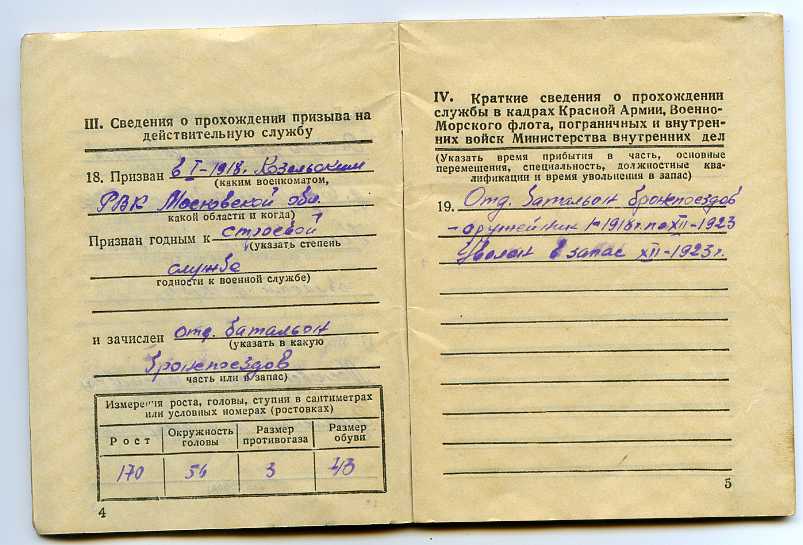 III. Сведения о прохождении призыва на
действительную службу
18. Призван в I-1918г. Козельским
(каким военкоматом,
РВК Московской обл.
какой области и когда)
Признан годным к строевой
(указать степень
служба
годности к военной службе)
и зачислен отд. батальон
(указать в какую
бронепоездов
часть или в запас)
Измерения роста, головы, ступни в сантиметрах
или условных номерах (ростовках)
Рост Окружность головы Размер противогаза Размер обуви
170 56 3 43
4
IV. Краткие сведения о прохождении
службы в кадрах Красной Армии, Военно-
Морского флота, пограничных и внутрен-
них войск Министерства внутренних дел
(Указать время прибытия в часть, основные
перемещения, специальность, должностные ква-
лификации и время увольнения в запас)
19. Отд. батальон бронепоездов
- оружейник I-1918г. по XII-1923
Уволен в запас XII-1923г.
5